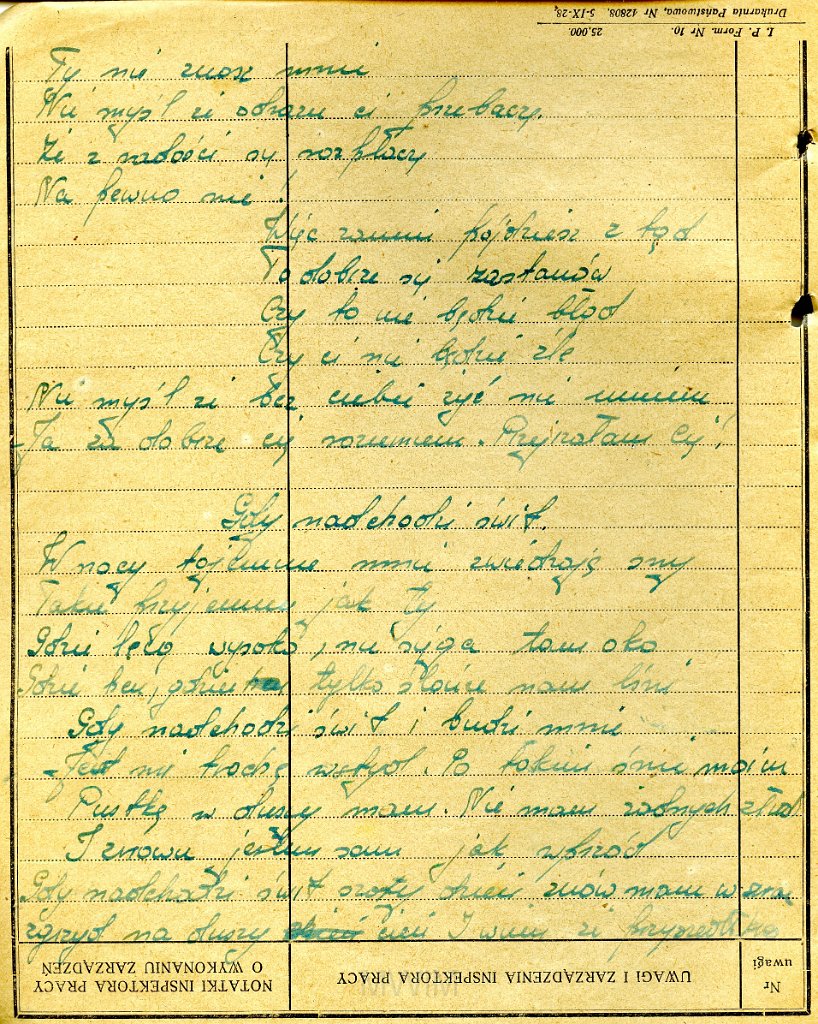 I. P. Form. Nr 10. 25.000.
Drukarnia Państwowa, Nr 12808. 5-IX-28.
Ty nie znasz mnie
Nie myśl że odrazu ci przebaczę.
Że z radości się rozpłaczę
Na pewno nie!
Więc zanim pójdziesz z tąd
To dobrze się zastanów
Czy to nie będzie błąd
Czy ci nie będzie źle
Nie myśl że bez ciebie żyć nie umiem
Ja za dobrze cię rozumiem. Przejrzałam Cię!
Gdy nadchodzi świt.
W nocy tajemne mnie zwiedzają sny
Takie przyjemne jak ty
Gdzieś lęcę wysoko, nie sięga tam oko
Gdzieś bez, gdzie tylko słońce nam lśni
Gdy nadchodzi świt i budzi mnie
Jest mi trochę wstyd. Po takim śnie moim
Pustkę w duszy mam. Nie mam żadnych złud
I znowu jestem sam jak wśród
Gdy nadchodzi świt szary dzień znów mam w
zgrzyt na duszy cień I wiem że
Nr uwagi
UWAGI I ZARZĄDZENIA INSPEKTORA PRACY
NOTATKI INSPEKTORA PRACY
O WYKONANIU ZARZĄDZEŃ